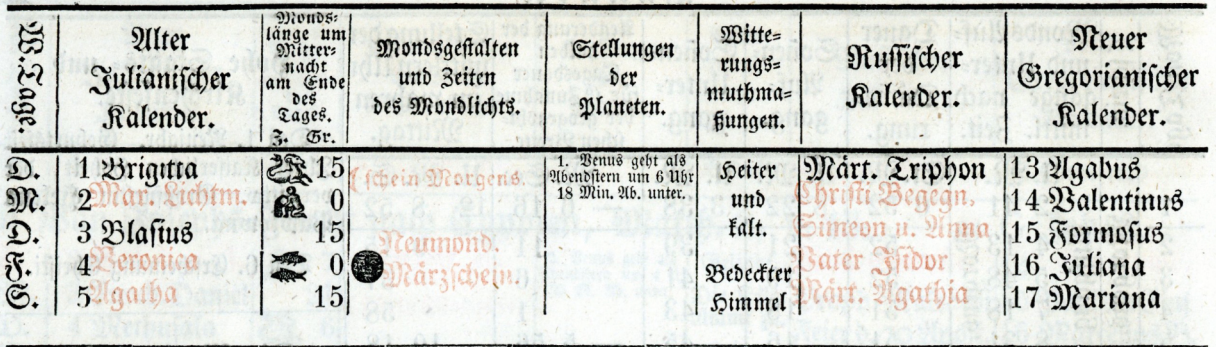 W.Tage.
Alter
Julianischer
Kalender.
Monds-
länge um
Mitter-
macht
am Ende
des
Tages.
Z. Gr.
Mondsgestalten
und Zeiten
des Mondlichts.
Stellungen
der
Planeten.
Witte-
rungs-
muthma-
ßungen.
Russischer
Kalender.
Neuer
Gregorianischer
Kalender.
D. 1 Brigitta 15 schein Morgens. 1. Venus geht als Heiter Märt. Triphon 13 Agabus
Abendstern um 6 Uhr
M. 2 Mar. Lichtm. 0 18 Min. Ab. unter. und Christi Begegn. 14 Valentinus
D. 3 Blasius 15 Neumond. kalt. Simeon u. Anna 15 Formosus
F. 4 Veronica 0 Märzschein. Bedeckter Vater Isidor 16 Juliana
S. 5 Agatha 15 Himmel Märt. Agathia 17 Mariana